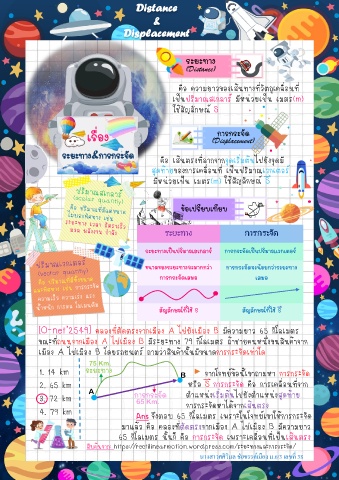 Distance
&
Displacement
ระยะทาง
(Distance)
คือ ความยาวของเส้นทางที่วัตถุเคลื่อนที่
เป็นปริมาณสเกลาร์ มีหน่วยเป็น เมตร(m)
ใช้สัญลักษณ์ S
เรื่อง
ระยะทาง&การกระจัด
การกระจัด
(Displacement)
คือ เส้นตรงที่ลากจากจุดเริ่มต้นไปยังจุด
สุดท้ายของการเคลื่อนที่ เป็นปริมาณเวกเตอร์
มีหน่วยเป็น เมตร(m) ใช้สัญลักษณ์ S
ปริมาณสเกลาร์
(scalar quantity)
ข้อเปรียบเทียบ
ระยะทาง
การกระจัด
ระยะทางเป็นปริมาณสเกลาร์
การกระจัดเป็นปริมาณเวกเตอร์
ขนาดของระยะทางจะมากกว่า
การกระจัดเสมอ
การกระจัดจะน้อยกว่าระยะทาง
เสมอ
สัญลักษณ์ที่ใช้ S
สัญลักษณ์ที่ใช้ S
ปริมาณเวกเตอร์
(vector quantity)
[O-net'2549] คลองที่ตัดตรงจากเมือง A ไปยังเมือง B มีความยาว 65 กิโลเมตร
ขณะที่ถนนจากเมือง A ไปเมือง B มีระยะทาง 79 กิโลเมตร ถ้าชายคนหนึ่งขนสินค้าจาก
เมือง A ไปเมือง B โดยรถยนต์ ถามว่าสินค้านั้นมีขนาดการกระจัดเท่าใด
1. 14 km
2. 65 km
3. 72 km
4. 79 km
79 Km
ระยะทาง
A
B
การกระจัด
65 Km
จากโจทย์ข้อนี้เขาถามหา การกระจัด
หรือ S การกระจัด คือ การเคลื่อนที่จาก
ตำแหน่งเริ่มต้นไปยังตำแหน่งสุดท้าย
การกระจัดหาได้จากเส้นตรง
Ans จึงตอบ 65 กิโลเมตร เพราะในโจทย์เขาให้การกระจัด
มาแล้ว คือ คลองที่ตัดตรงจากเมือง A ไปยังเมือง B มีความยาว
65 กิโลเมตร นั้นก็ คือ การกระจัด เพราะเคลื่อนที่เป็นเส้นตรง